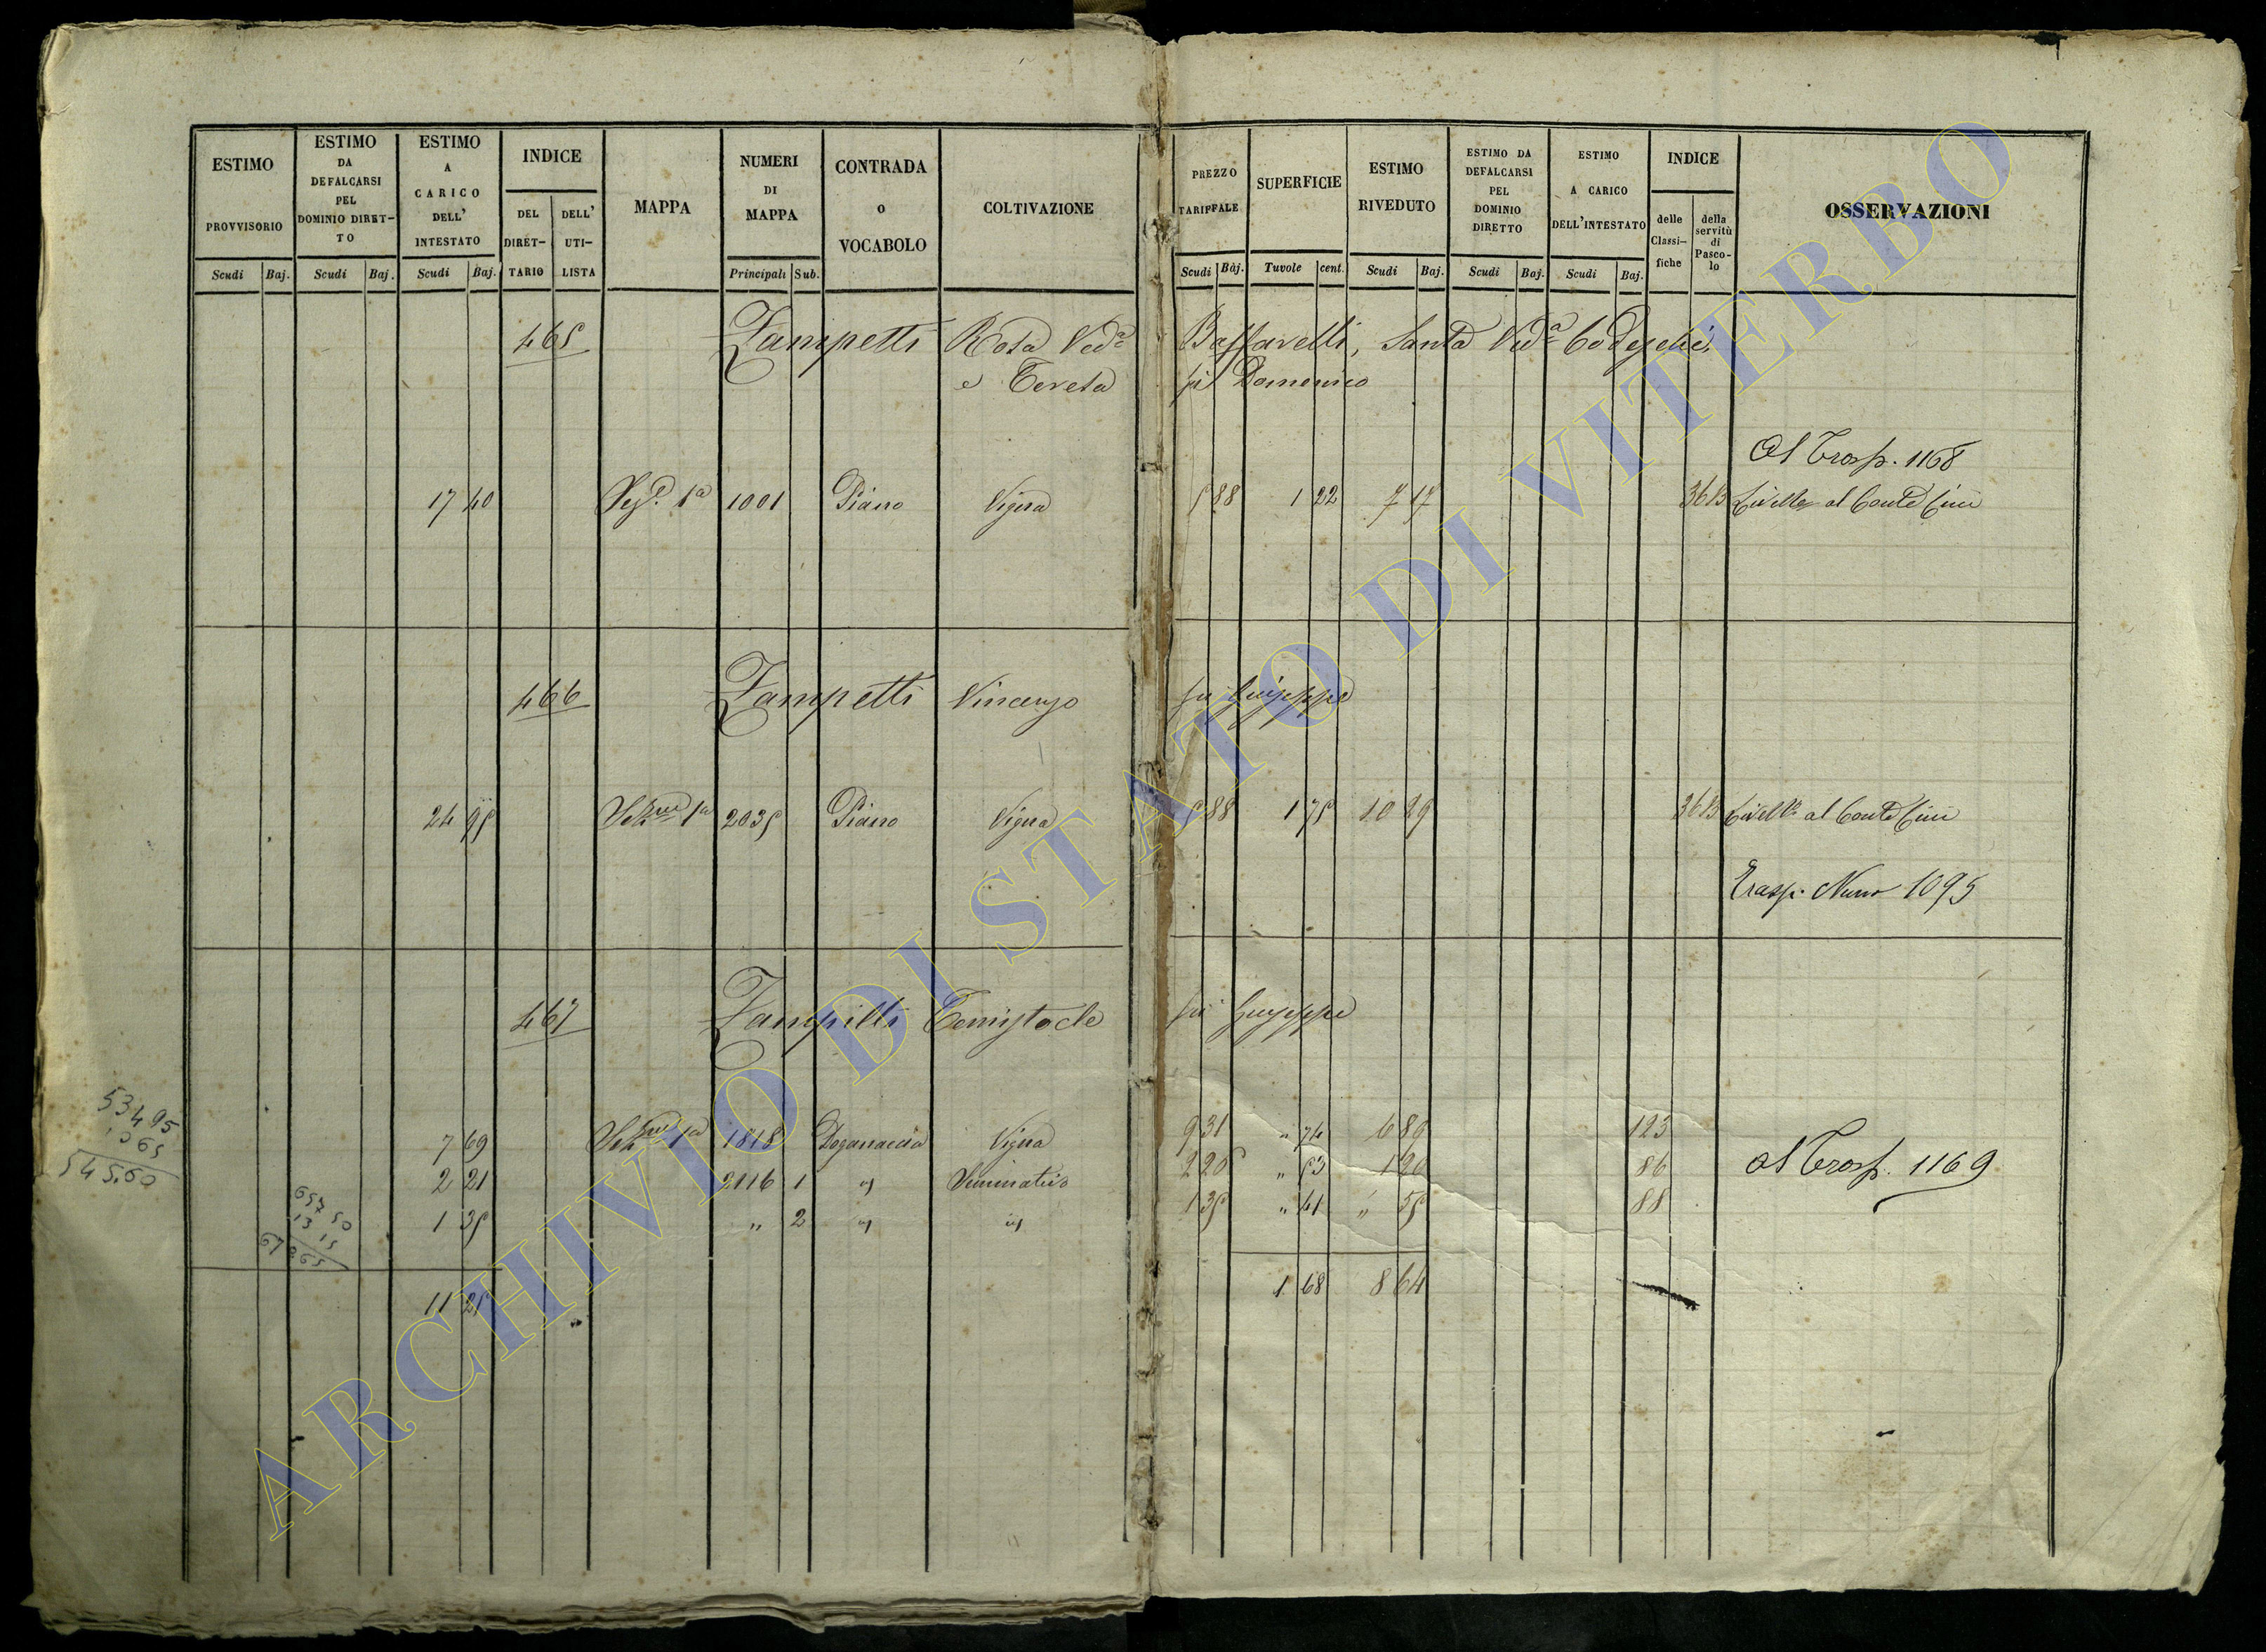 ESTIMO PROVVISORIO
ESTIMO DA DEFALCARSI PEL DOMINIO DIRET-TO
ESTIMO A CARICO DELL' INTESTATO
INDICE
DEL DIRET-TARIO
DELL' UTI-LISTA
MAPPA
NUMERI DI MAPPA
CONTRADA o VOCABOLO
COLTIVAZIONE
PREZZO TARIFFALE
SUPERFICIE
ESTIMO RIVEDUTO
ESTIMO DA DEFALCARSI PEL DOMINIO DIRETTO
ESTIMO A CARICO DELL'INTESTATO
INDICE
delle Classi-fiche
della servitù di Pasco-lo
OSSERVAZIONI
Scudi Baj. Scudi Baj. Scudi Baj. Principali Sub. Scudi Baj. Tavole cent. Scudi Baj. Scudi Baj. Scudi Baj.
465 Zampetti Rosa Ved.a Santa Ved.a
e Teresa fu Domenico
Al Trasp. 1168
17 40 1a 1001 Piano Vigna 5 88 1 22 7 17 36 B Livello al Conte Cini
466 Zampetti Vincenzo fu Giuseppe
24 95 1a 2035 Piano Vigna 5 88 1 75 10 29 36 B Livello al Conte Cini
Trasp. Num 1095
467 Zampetti Temistocle fu Giuseppe
53495
1065
545,60
7 69 1a 1818 Doganaccia Vigna 9 31 " 74 6 89 123
2 21 2116 1 " Seminativo 2 26 " 53 1 20 86 Al Trasp. 1169
1 35 " 2 " " 1 35 " 41 " 55 88
657 50
13 15
11 25 1 68 8 64
ARCHIVIO DI STATO DI VITERBO